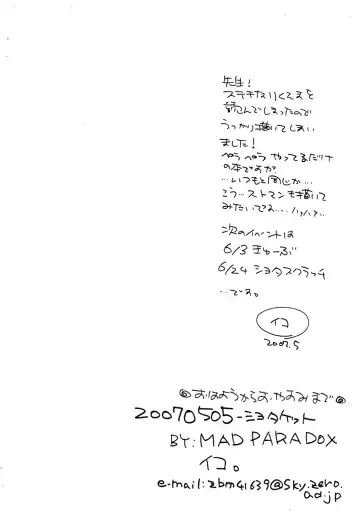 先生!
ステキなリクエストを
読んでしまったので
うっかり描いてしまい
ました!
ぺらぺらやってるだけ
の本ですが、
…いつもと同じか…
こう…ストマンも描いて
みたいでねぇ…ハァハァ…
次のイベントは
6/3 きゅーぶ
6/24 ショタスクラッチ
…です。
イコ
2007.5
◎おはようからおやすみまで◎
20070505-ショタケット
BY: MAD PARADOX
イコ。
e-mail: zbm41639@sky.zero.
ad.jp